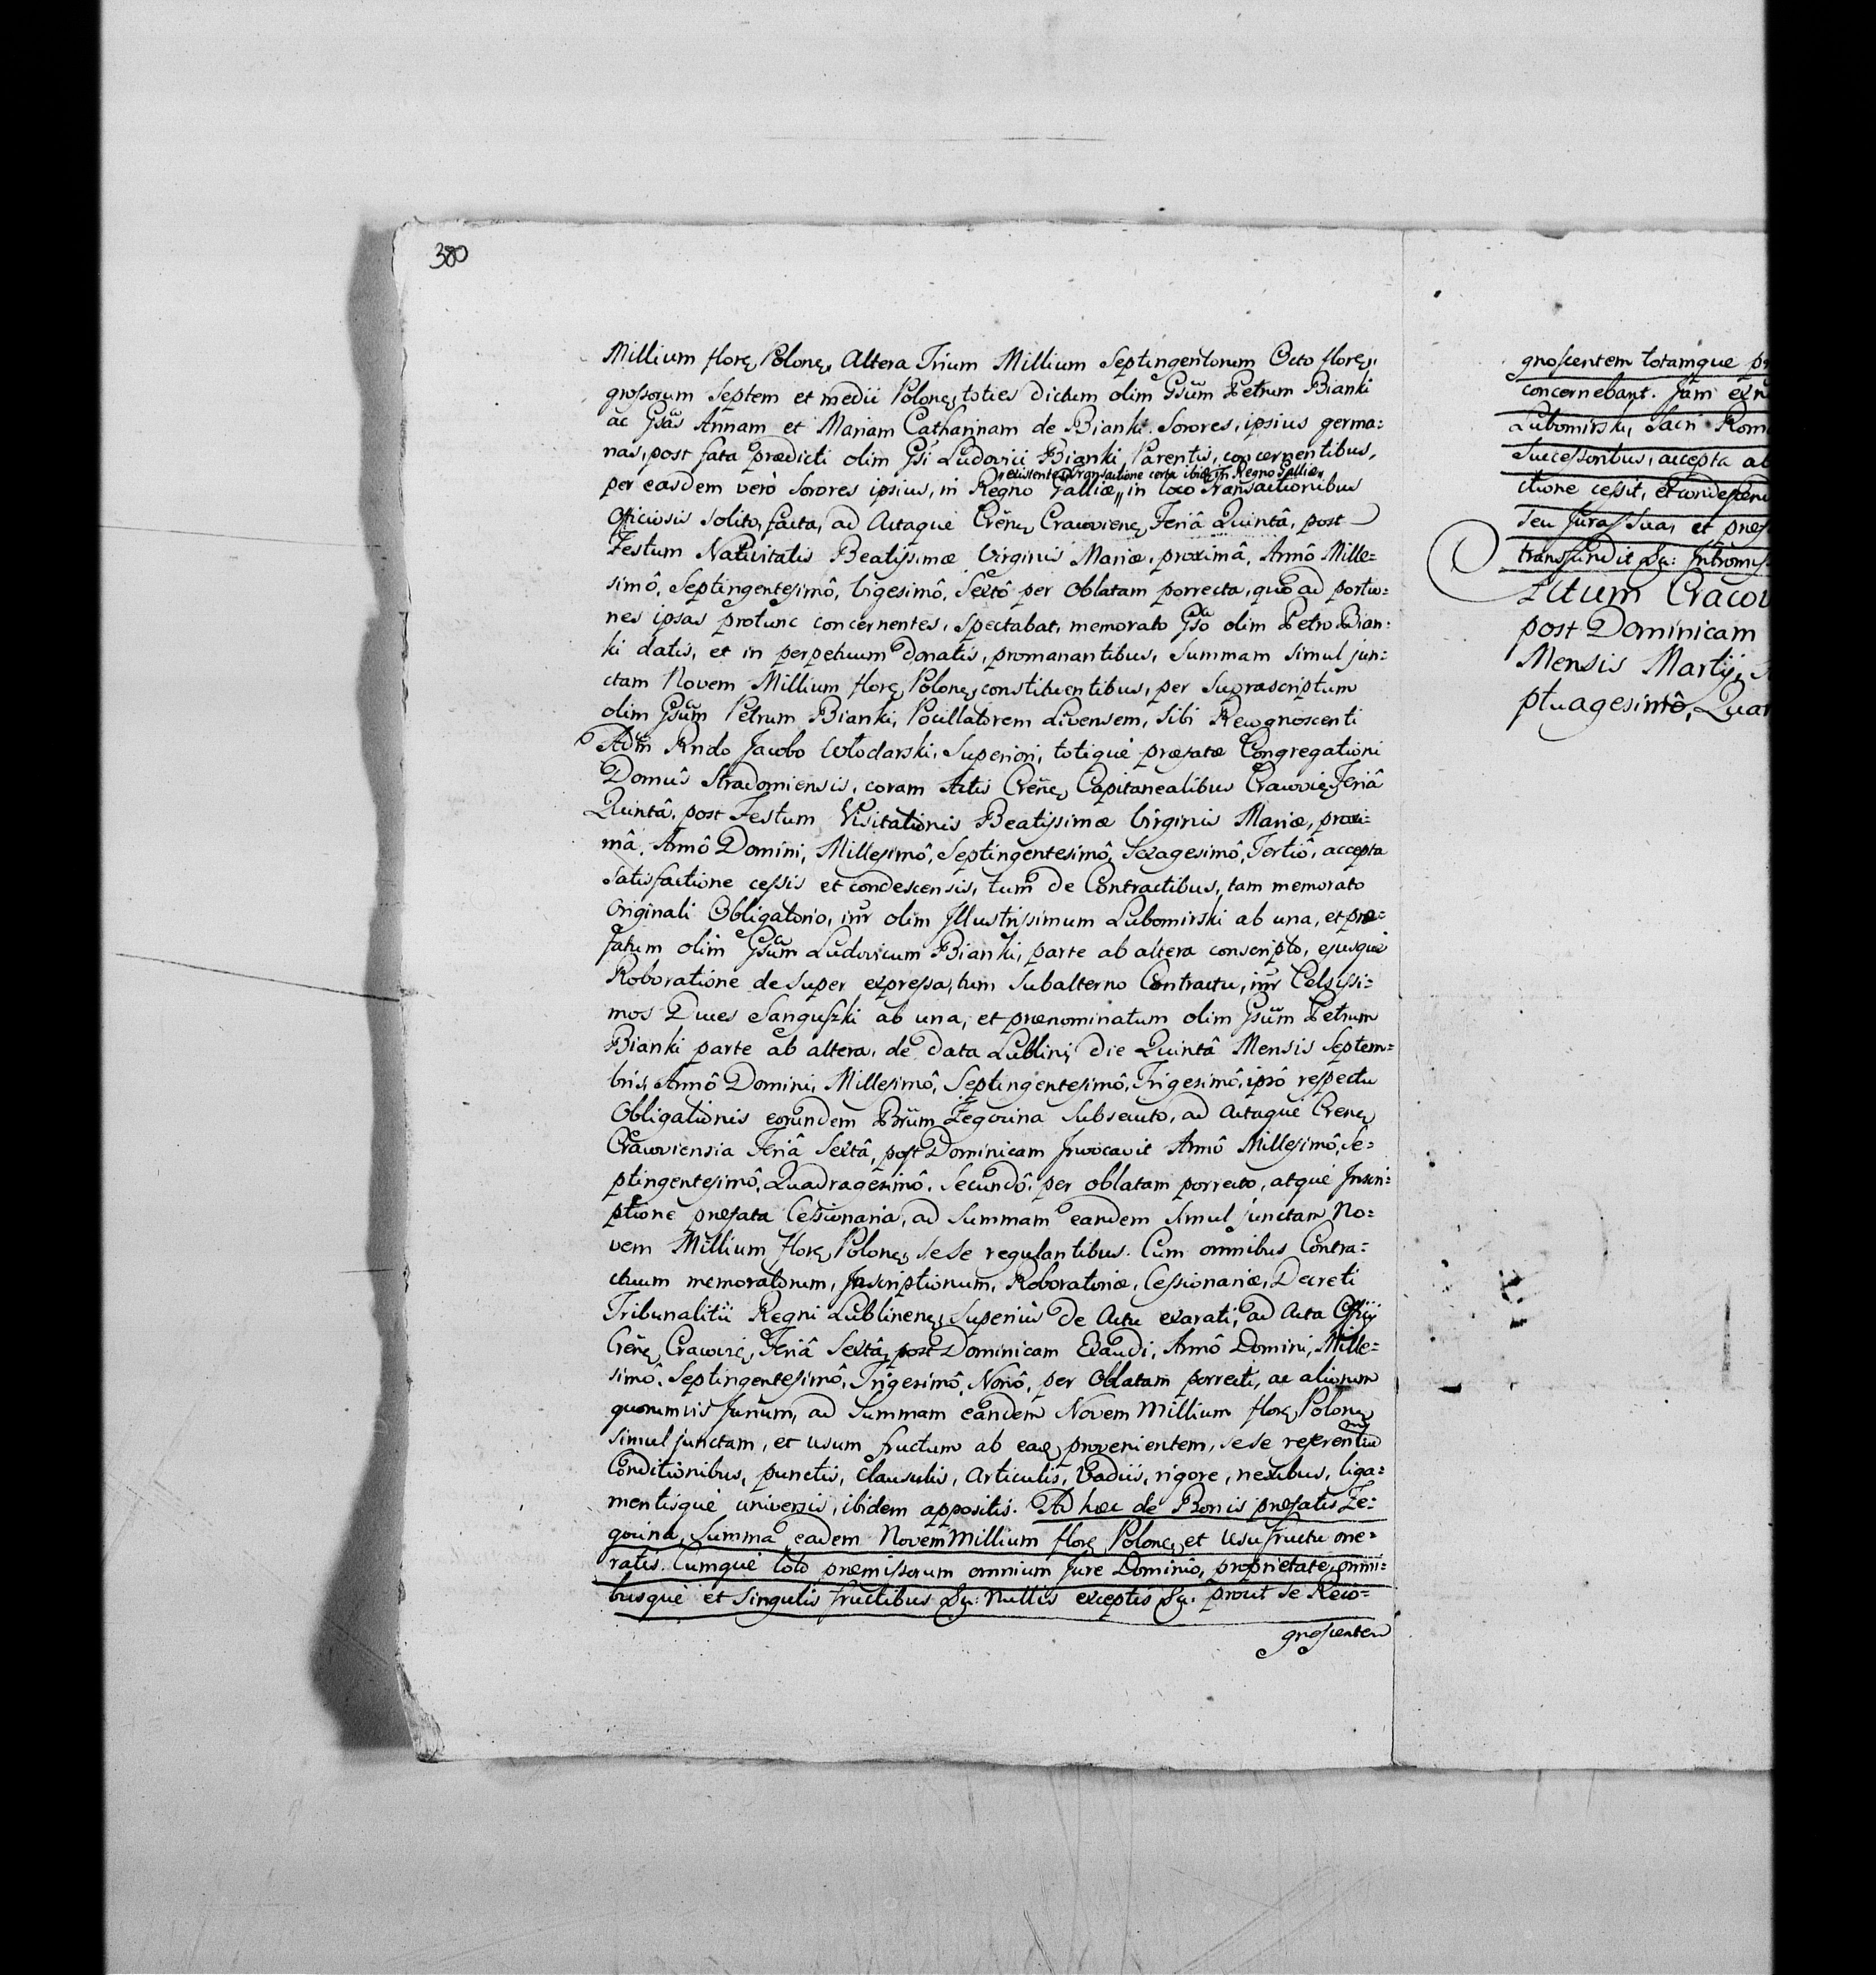 380
Millium florę, Polonę, Altera Trium Millium Septingentorum Octo florę,,
grossorum Septem et medii Polonę, toties dictum olim Gsum Petrum Bianki
ac Gsas Annam et Mariam Catharinam de Bianki Sorores, ipsius germa=
nas, post fata prædicti olim Gsi Ludovici Bianki Parentis, concernentibus,
„existentes, Transactione certa ibidem in Regno Galliæ„
per easdem verò Sorores ipsius, in Regno Galliæ„ in loco Transactionibus
Officiosis solito, facta, ad Actaque Crēnę, Cracovienę, Feriâ Quintâ, post
Festum Nativitatis Beatissimæ Virginis Mariæ, proximâ, Annô Mille=
simô, Septingentesimô, Vigesimô, Sextô per Oblatam porrecta, quô ad portio=
nes ipsas protunc concernentes, spectabat, memorato Gso olim Petro Bian=
ki datis, et in perpetuum Donatis, promanantibus, Summam simul jun=
ctam Novem Millium florę, Polonę, constituentibus, per Suprascriptum
olim Gsum Petrum Bianki, Pocillatorem Livensem, Sibi Recognoscenti
Adm Rndo Jacobo Włodarski, Superiori, totique præfatæ Congregationi
Domûs Stradomiensis, coram Actis Crēnę, Capitanealibus Cracovię, Feriâ
Quintâ, post Festum Visitationis Beatissimæ Virginis Mariæ, proxi=
mâ, Annô Domini, Millesimô, Septingentesimô, Sexagesimô, Tertiô, accepta
satisfactione cessis et condescensis, tum de Contractibus, tam memorato
Originali Obligatorio, inr olim Illustrissimum Lubomirski ab una, et præ=
fatum olim Gsum Ludovicum Bianki, parte ab altera conscripto, ejusque
Roboratione desuper expressa, tum Subalterno Contractu, inr Celsissi=
mos Duces Sanguszki ab una, et prænominatum olim Gsum Petrum
Bianki parte ab altera, de data Lublini, die Quintâ Mensis Septem=
bris, Annô Domini, Millesimô, Septingentesimô, Trigesimô, ipsô respectu
Obligationis eorundem Bnum Zegocina Subsecuto, ad Actaque Crenę
Cracoviensia Feriâ Sextâ, post Dominicam Invocavit Annô Millesimô, Se=
ptingentesimô, Quadragesimô, Secundô, per oblatam porrecto, atque Inscri=
ptione præfata Cessionaria, ad Summam eandem simul junctam No=
vem Millium florę, Polonę, sese regulantibus. Cum omnibus Contra=
ctuum memoratorum, Inscriptionum, Roboratoriæ, Cessionariæ, Decreti
Tribunalitii Regni Lublinenę, Superiùs de Actu exarati, ad Acta Offij
Crēnę, Cracovię, Feriâ Sextâ, post Dominicam Exaudi, Annô Domini, Mille=
simô, Septingentesimô, Trigesimô, Nonô, per Oblatam porrecti, ac aliorum
quorumvis Jurium, ad Summam eandem Novem Millium florę, Polonę
simul junctam, et usum fructum ab eaę, provenientem, sese referentium
Conditionibus, punctis, Clausulis, Articulis, Vadiis, rigore, nexibus, liga=
mentisque universis, ibidem appositis. Ad hæc de Bonis præfatis Ze=
gocina, Summa eadem Novem Millium florę, Polonę, et Usufructu one=
ratis. Cumque toto præmissorum omnium Jure Dominio, proprietate, omni=
busque et singulis fructibus &c: Nullis exceptis &c: prout se Reco=
gnoscentem
gnoscentem totamque
concernebant. Jam
Lubomirski, Sacri Rom
Successoribus, accepta
ctione cessit, et condescen
seu Jura Sua, et præf
transfundit &c:
Actum Cracov
post Dominicam
Mensis Martij,
ptuagesimô, Quar